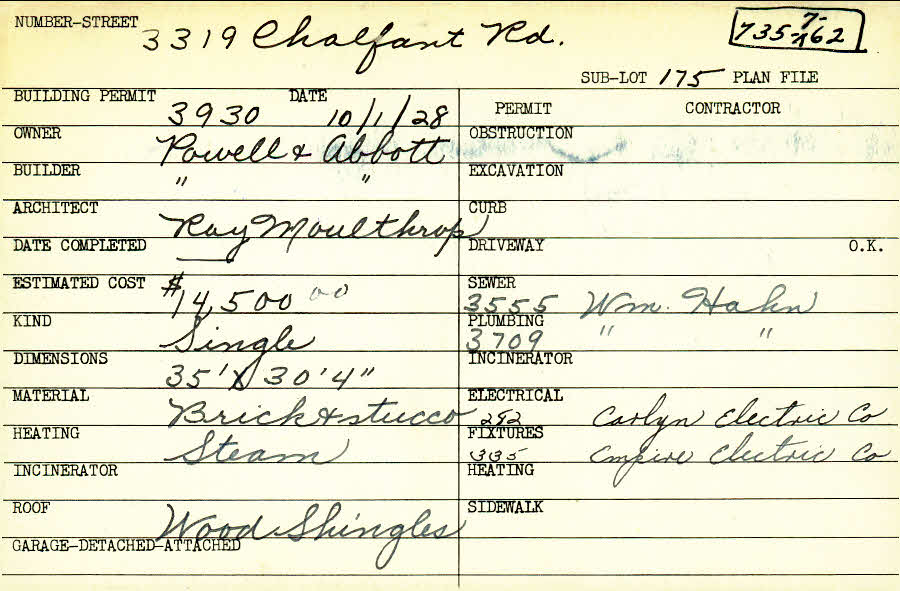 NUMBER-STREET 3319 Chalfant Rd.
735-7-62
SUB-LOT 175 PLAN FILE
BUILDING PERMIT 3930 DATE 10/1/28
PERMIT CONTRACTOR
OWNER Powell & Abbott
OBSTRUCTION
BUILDER " "
EXCAVATION
ARCHITECT Ray Moulthrop
CURB
DATE COMPLETED —
DRIVEWAY O.K.
ESTIMATED COST $14,500 00
SEWER 3555 Wm. Hahn
KIND Single
PLUMBING 3709 " "
DIMENSIONS 35' X 30'4"
INCINERATOR
MATERIAL Brick & stucco
ELECTRICAL 292 Carlyn Electric Co
HEATING Steam
FIXTURES 335 Empire Electric Co
INCINERATOR
HEATING
ROOF Wood Shingles
SIDEWALK
GARAGE-DETACHED-ATTACHED